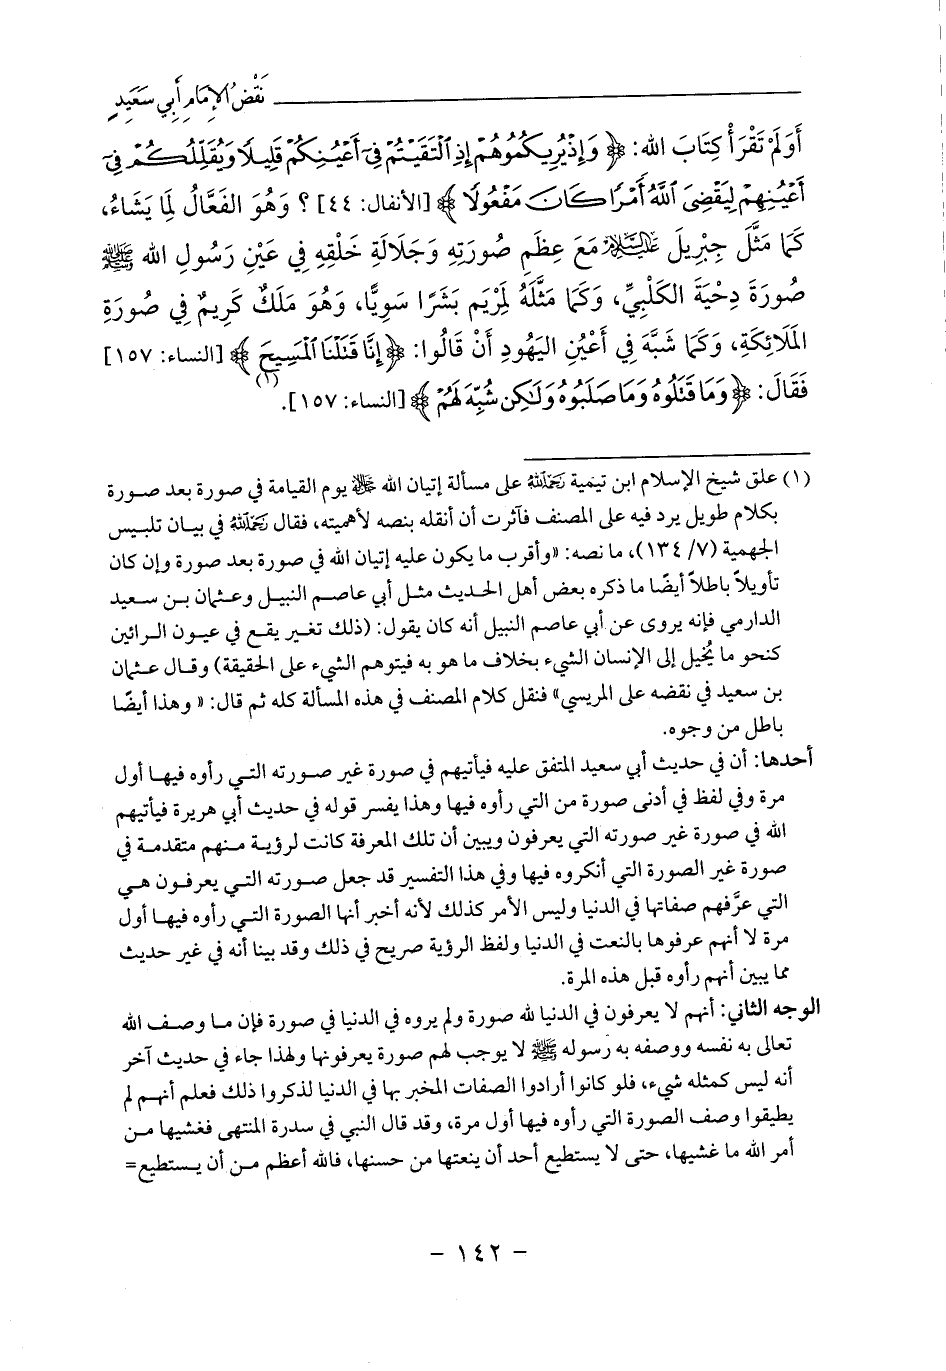 نَقْضُ الإِمَامِ أَبِي سَعِيدٍ
أَوَلَمْ تَقْرَأْ كِتَابَ الله: ﴿ وَإِذْ يُرِيكُمُوهُمْ إِذِ ٱلْتَقَيْتُمْ فِىٓ أَعْيُنِكُمْ قَلِيلًا وَيُقَلِّلُكُمْ فِىٓ
أَعْيُنِهِمْ لِيَقْضِىَ ٱللَّهُ أَمْرًا كَانَ مَفْعُولًا ﴾ [الأنفال: ٤٤] ؟ وَهُوَ الفَعَّالُ لِمَا يَشَاءُ،
كَمَا مَثَّلَ جِبْرِيلَ عَلَيْهِ السَّلَامُ مَعَ عِظَمِ صُورَتِهِ وَجَلَالَةِ خَلْقِهِ فِي عَيْنِ رَسُولِ الله ﷺ
صُورَةَ دِحْيَةَ الكَلْبِيِّ، وَكَمَا مَثَّلَهُ لِمَرْيَم بَشَرًا سَوِيًّا، وَهُوَ مَلَكٌ كَرِيمٌ فِي صُورَةِ
المَلَائِكَةِ، وَكَمَا شَبَّهَ فِي أَعْيُنِ اليَهُودِ أَنْ قَالُوا: ﴿ إِنَّا قَتَلْنَا ٱلْمَسِيحَ ﴾ [النساء: ١٥٧]
فَقَالَ: ﴿ وَمَا قَتَلُوهُ وَمَا صَلَبُوهُ وَلَٰكِن شُبِّهَ لَهُمْ ﴾(١) [النساء: ١٥٧].
(١) علق شيخ الإسلام ابن تيمية رَحِمَهُ اللهُ على مسألة إتيان الله ﷻ يوم القيامة في صورة بعد صورة
بكلام طويل يرد فيه على المصنف فآثرت أن أنقله بنصه لأهميته، فقال رَحِمَهُ اللهُ في بيان تلبيس
الجهمية (٧/ ١٣٤)، ما نصه: «وأقرب ما يكون عليه إتيان الله في صورة بعد صورة وإن كان
تأويلاً باطلاً أيضًا ما ذكره بعض أهل الحديث مثل أبي عاصم النبيل وعثمان بن سعيد
الدارمي فإنه يروى عن أبي عاصم النبيل أنه كان يقول: (ذلك تغير يقع في عيون الرائين
كنحو ما يُخيل إلى الإنسان الشيء بخلاف ما هو به فيتوهم الشيء على الحقيقة) وقال عثمان
بن سعيد في نقضه على المريسي» فنقل كلام المصنف في هذه المسألة كله ثم قال: « وهذا أيضًا
باطل من وجوه.
أحدها: أن في حديث أبي سعيد المتفق عليه فيأتيهم في صورة غير صورته التي رأوه فيها أول
مرة وفي لفظ في أدنى صورة من التي رأوه فيها وهذا يفسر قوله في حديث أبي هريرة فيأتيهم
الله في صورة غير صورته التي يعرفون ويبين أن تلك المعرفة كانت لرؤية منهم متقدمة في
صورة غير الصورة التي أنكروه فيها وفي هذا التفسير قد جعل صورته التي يعرفون هي
التي عرَّفهم صفاتها في الدنيا وليس الأمر كذلك لأنه أخبر أنها الصورة التي رأوه فيها أول
مرة لا أنهم عرفوها بالنعت في الدنيا ولفظ الرؤية صريح في ذلك وقد بينا أنه في غير حديث
مما يبين أنهم رأوه قبل هذه المرة.
الوجه الثاني: أنهم لا يعرفون في الدنيا لله صورة ولم يروه في الدنيا في صورة فإن ما وصف الله
تعالى به نفسه ووصفه به رسوله ﷺ لا يوجب لهم صورة يعرفونها ولهذا جاء في حديث آخر
أنه ليس كمثله شيء، فلو كانوا أرادوا الصفات المخبر بها في الدنيا لذكروا ذلك فعلم أنهم لم
يطيقوا وصف الصورة التي رأوه فيها أول مرة، وقد قال النبي في سدرة المنتهى فغشيها من
أمر الله ما غشيها، حتى لا يستطيع أحد أن ينعتها من حسنها، فالله أعظم من أن يستطيع=
- ١٤٢ -